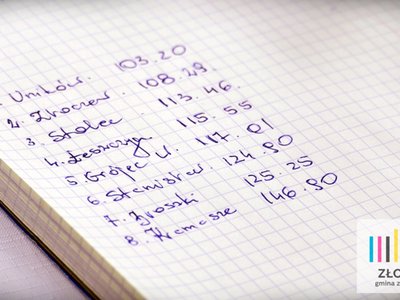 1. Uników. 103.20
2. Złoczew. 108.29.
3. Stolec. 113.46.
4. Łeszczyn 115.55
5. Grójec W. 117.01
6. Stanisław. 124.90
7. Broszki 125.25
8. Kamasze 146.90
ZŁO
gmina z